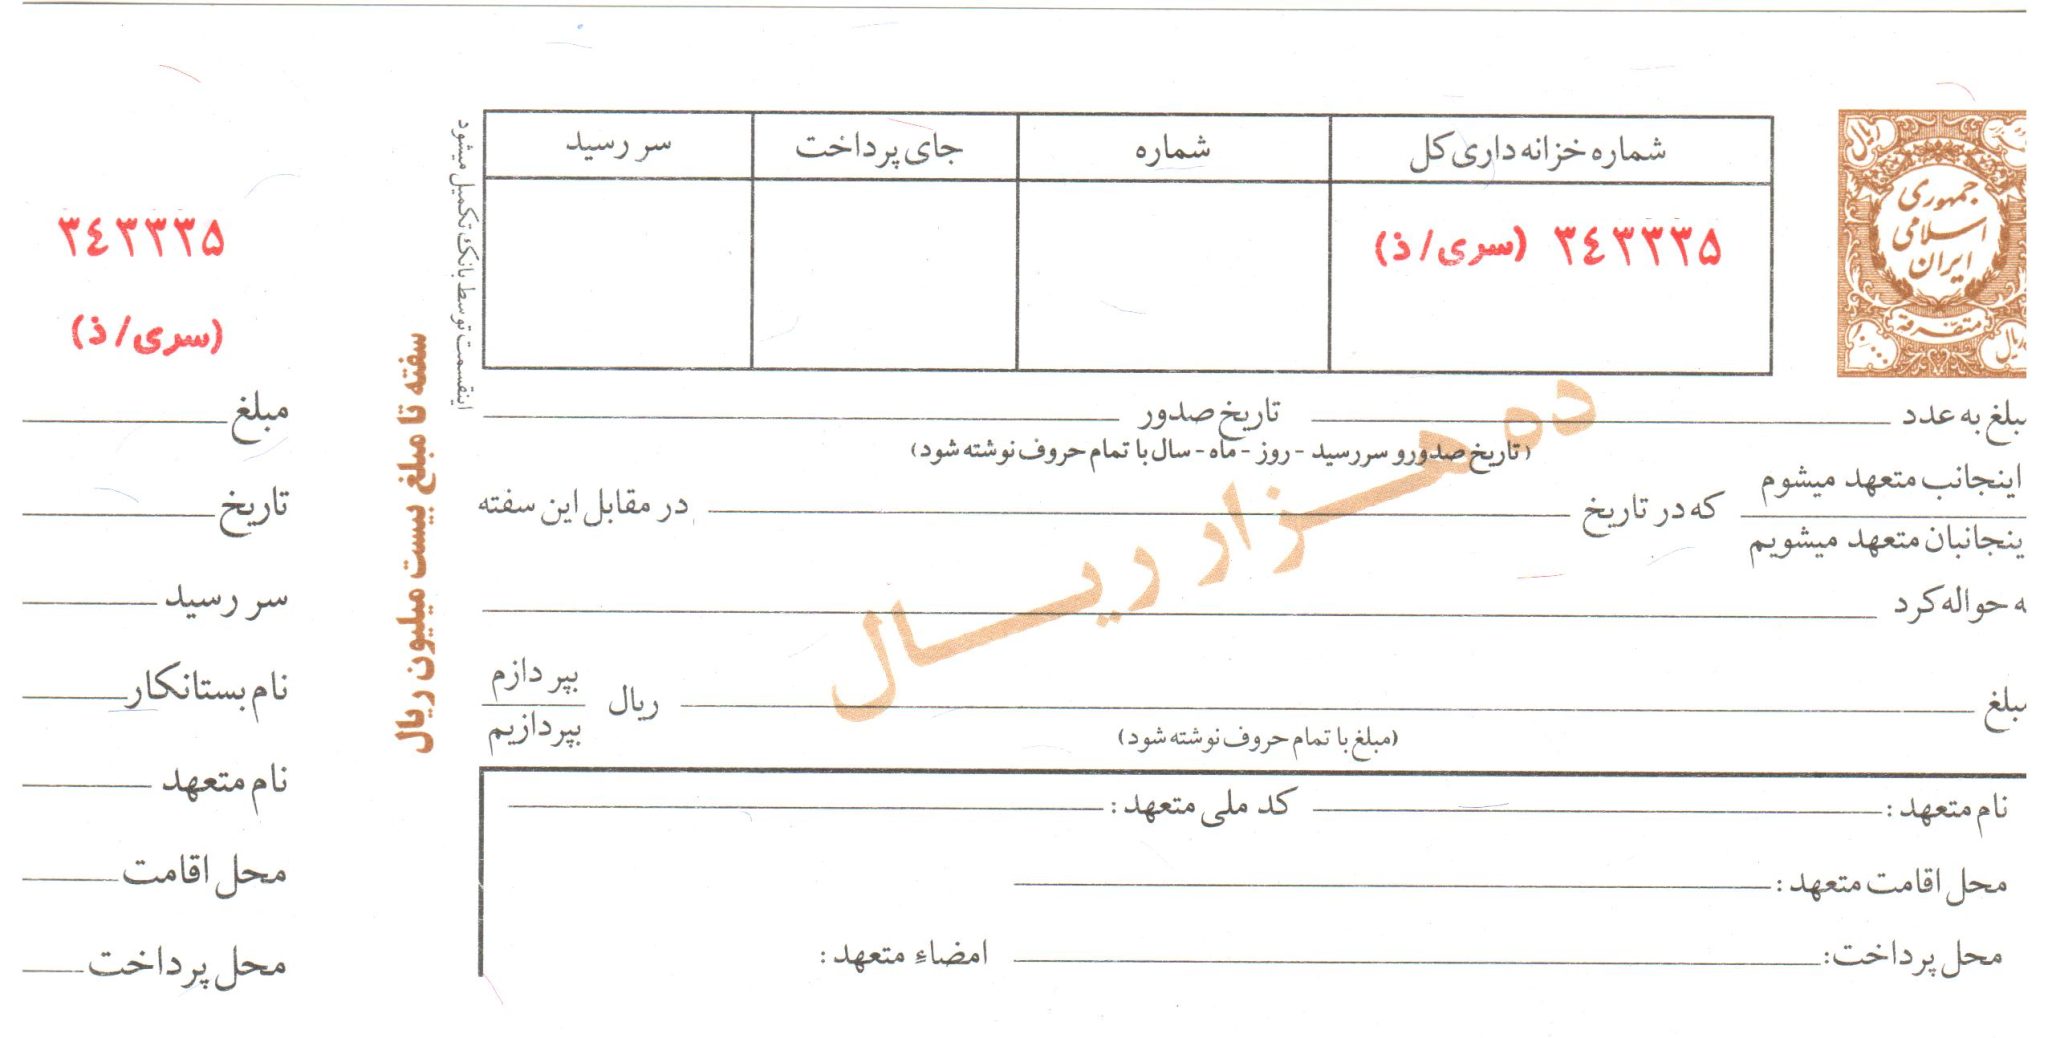 جمهوری
اسلامی
ایران
متفرقه
ریال
شماره خزانه داری کل
شماره
جای پرداخت
سر رسید
۳۴۳۳۳۵ (سری/ذ)
اینقسمت توسط بانک تکمیل میشود
ده هزار ریال
مبلغ به عدد تاریخ صدور
(تاریخ صدورو سررسید - روز - ماه - سال با تمام حروف نوشته شود)
اینجانب متعهد میشوم
ینجانبان متعهد میشویم
که در تاریخ در مقابل این سفته
ه حواله کرد
مبلغ ریال
بپردازم
بپردازیم
(مبلغ با تمام حروف نوشته شود)
نام متعهد: کد ملی متعهد:
محل اقامت متعهد:
محل پرداخت: امضاء متعهد:
سفته تا مبلغ بیست میلیون ریال
۳۴۳۳۳۵
(سری/ذ)
مبلغ
تاریخ
سر رسید
نام بستانکار
نام متعهد
محل اقامت
محل پرداخت